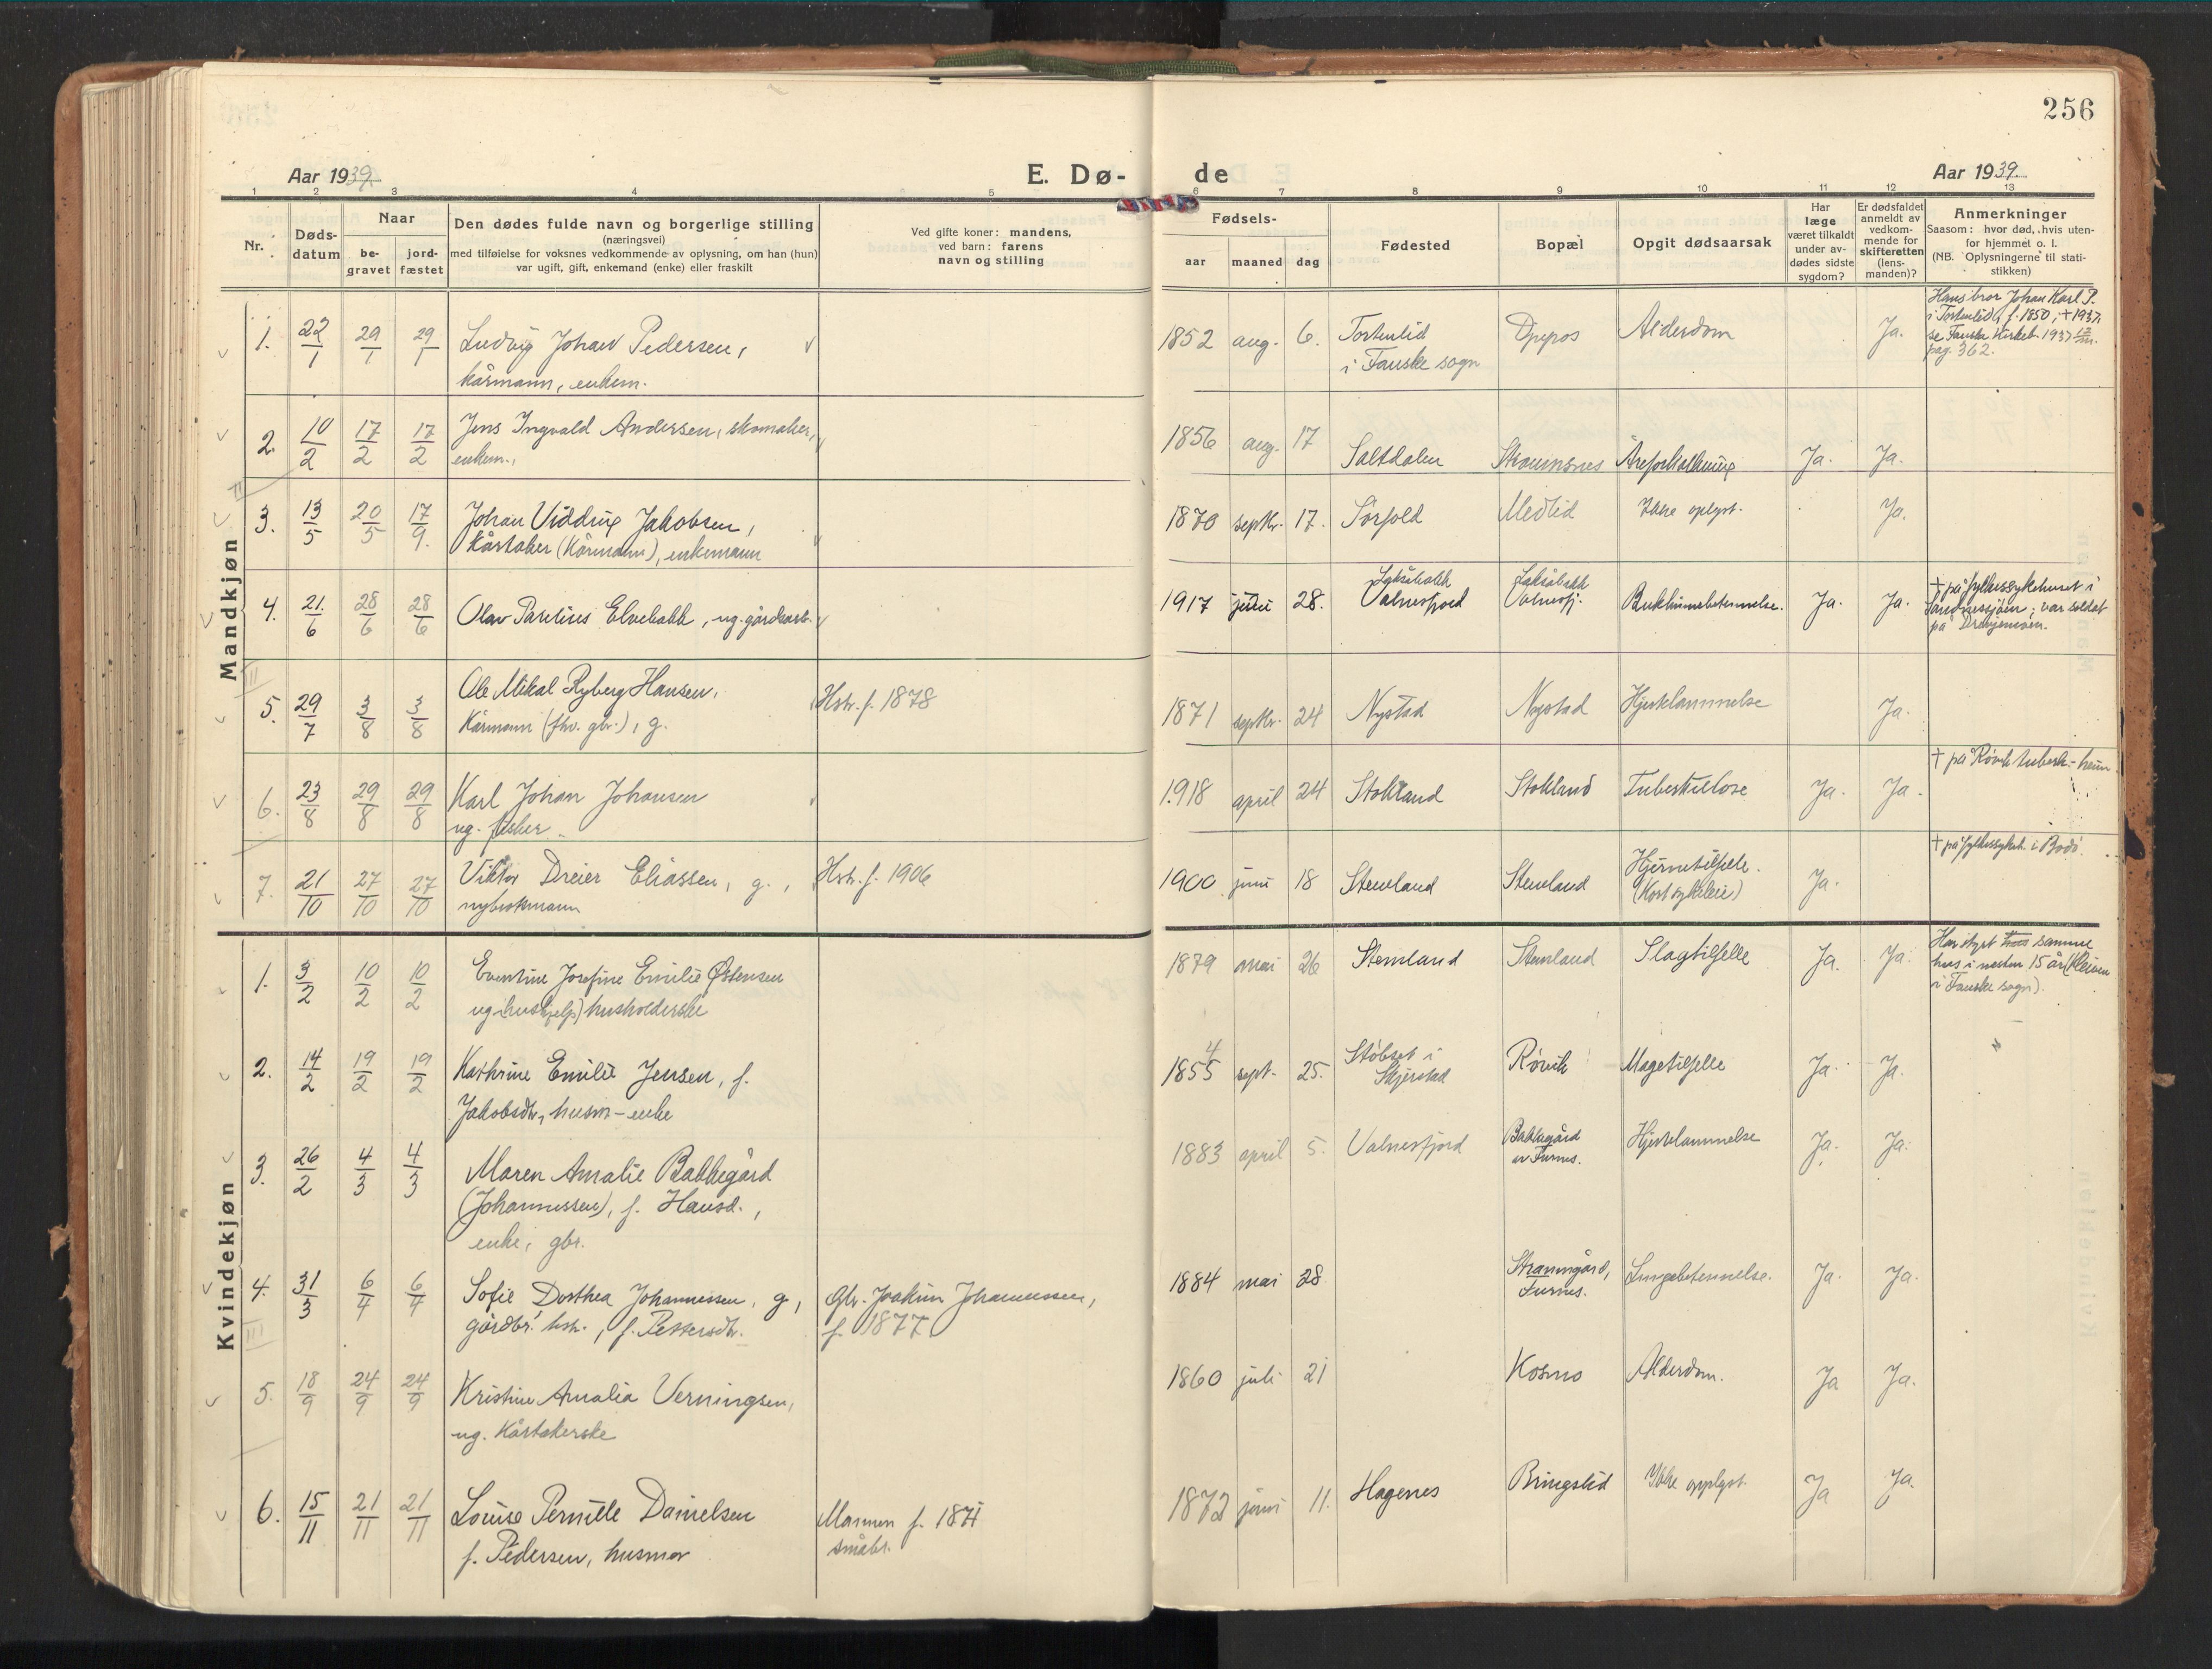 256
Aar 1939.
E. Dø-
de
Aar 1939.
1 2 3 4 5 6 7 8 9 10 11 12 13
Nr.
Døds-
datum
Naar
be-
gravet
jord-
fæstet
Den dødes fulde navn og borgerlige stilling
(næringsvei)
med tilføielse for voksnes vedkommende av oplysning, om han (hun)
var ugift, gift, enkemand (enke) eller fraskilt
Ved gifte koner: mandens,
ved barn: farens
navn og stilling
Fødsels-
aar maaned dag
Fødested
Bopæl
Opgit dødsaarsak
Har
læge
været tilkaldt
under av-
dødes sidste
sygdom?
Er dødsfaldet
anmeldt av
vedkom-
mende for
skifteretten
(lens-
manden)?
Anmerkninger
Saasom: hvor død, hvis uten-
for hjemmet o. l.
(NB. Oplysningerne til stati-
stikken)
Mandkjøn
1. 22/1 29/1 29/1 Ludvig Johan Pedersen,
kårmann, enkem.
1852 aug. 6. Tortenlid
i Fauske sogn
Alderdom Ja.
Hans bror Johan Karl P.
i Tortenlid, f. 1850, + 1937,
se Fauske Kirkeb. 1937
pag. 362.
2. 10/2 17/2 17/2 Jens Ingvald Andersen, skomaker,
enkem.,
1856 aug. 17 Saltdalen Straumsnes Åreforkalkning Ja. Ja.
3. 13/5 20/5 17/9. Johan Viddrup Jakobsen,
Kårtaker (Kårmann), enkemann
1870 septbr. 17. Sørfold Medlid Ikke oplyst. Ja.
4. 21/6 28/6 28/6 Olav Parelius Elvebakk, ug. gårdbr.
1917 28. Laksåbakk
Valnesfjord
Laksåbakk
Valnesfj.
Bukhinnebetennelse. Ja. Ja.
+ på fylkessykehuset i
Sandnessjøen; var soldat
på Drevjemoen.
5. 29/7 3/8 3/8 Ole Mikal Ryberg Hansen,
Kårmann (fhv. gbr.), g.
Hstr. f. 1878
1871 septbr. 24 Nystad Nystad Hjertelammelse Ja.
6. 23/8 29/8 29/8 Karl Johan Johansen
ug. fisker.
1918 april 24 Stokland Stokland Tuberkulose Ja. Ja.
+ på Røvik tuberk.-heim.
7. 21/10 27/10 27/10 Viktor Dreier Eliassen, g.,
nybrottsmann
Hstr. f. 1906
1900 juni 18 Stemland Stemland Hjernetilfelle.
(Kort sykeleie)
Ja.
+ på fylkessykeh. i Bodø.
Kvindekjøn
1. 3/2 10/2 10/2 Eventine Josefine Emilie Østensen
ug. (hushjelp) husholderske
1879 mai 26 Stemland Stemland Slagtilfelle Ja. Ja.
Har styrt samme
hus i nesten 15 år (Kleiven
i Fauske sogn).
2. 14/2 19/2 19/2 Kathrine Emilie Jensen, f.
Jakobsdtr., husm-enke
4
1855 sept. 25. Støbset i
Skjerstad
Røvik Magetilfelle Ja. Ja.
3. 26/2 4/3 4/3 Maren Amalie Bakkegård
(Johannessen), f. Hansd.,
enke, gbr.
1883 april 5. Valnesfjord Bakkegård
av Furnes.
Hjertelammelse Ja. Ja.
4. 31/3 6/4 6/4 Sofie Dorthea Johannessen, g,
gårdbr. hstr., f. Pettersdtr.
Gbr. Joakim Johannessen,
f. 1877
1884 mai 28 Straumgård,
Furnes.
Lungebetennelse. Ja. Ja.
5. 18/9 24/9 24/9 Kristine Amalia Verningsen,
ug. Kårtakerske
1860 juli 21 Kosmo Alderdom. Ja Ja.
6. 15/11 21/11 21/11 Louise Pernille Danielsen
f. Pedersen, husmor
Mannen f. 1871
småbr.
1872 juni 11. Hagenes Bringslid Ikke opplyst. Ja Ja.